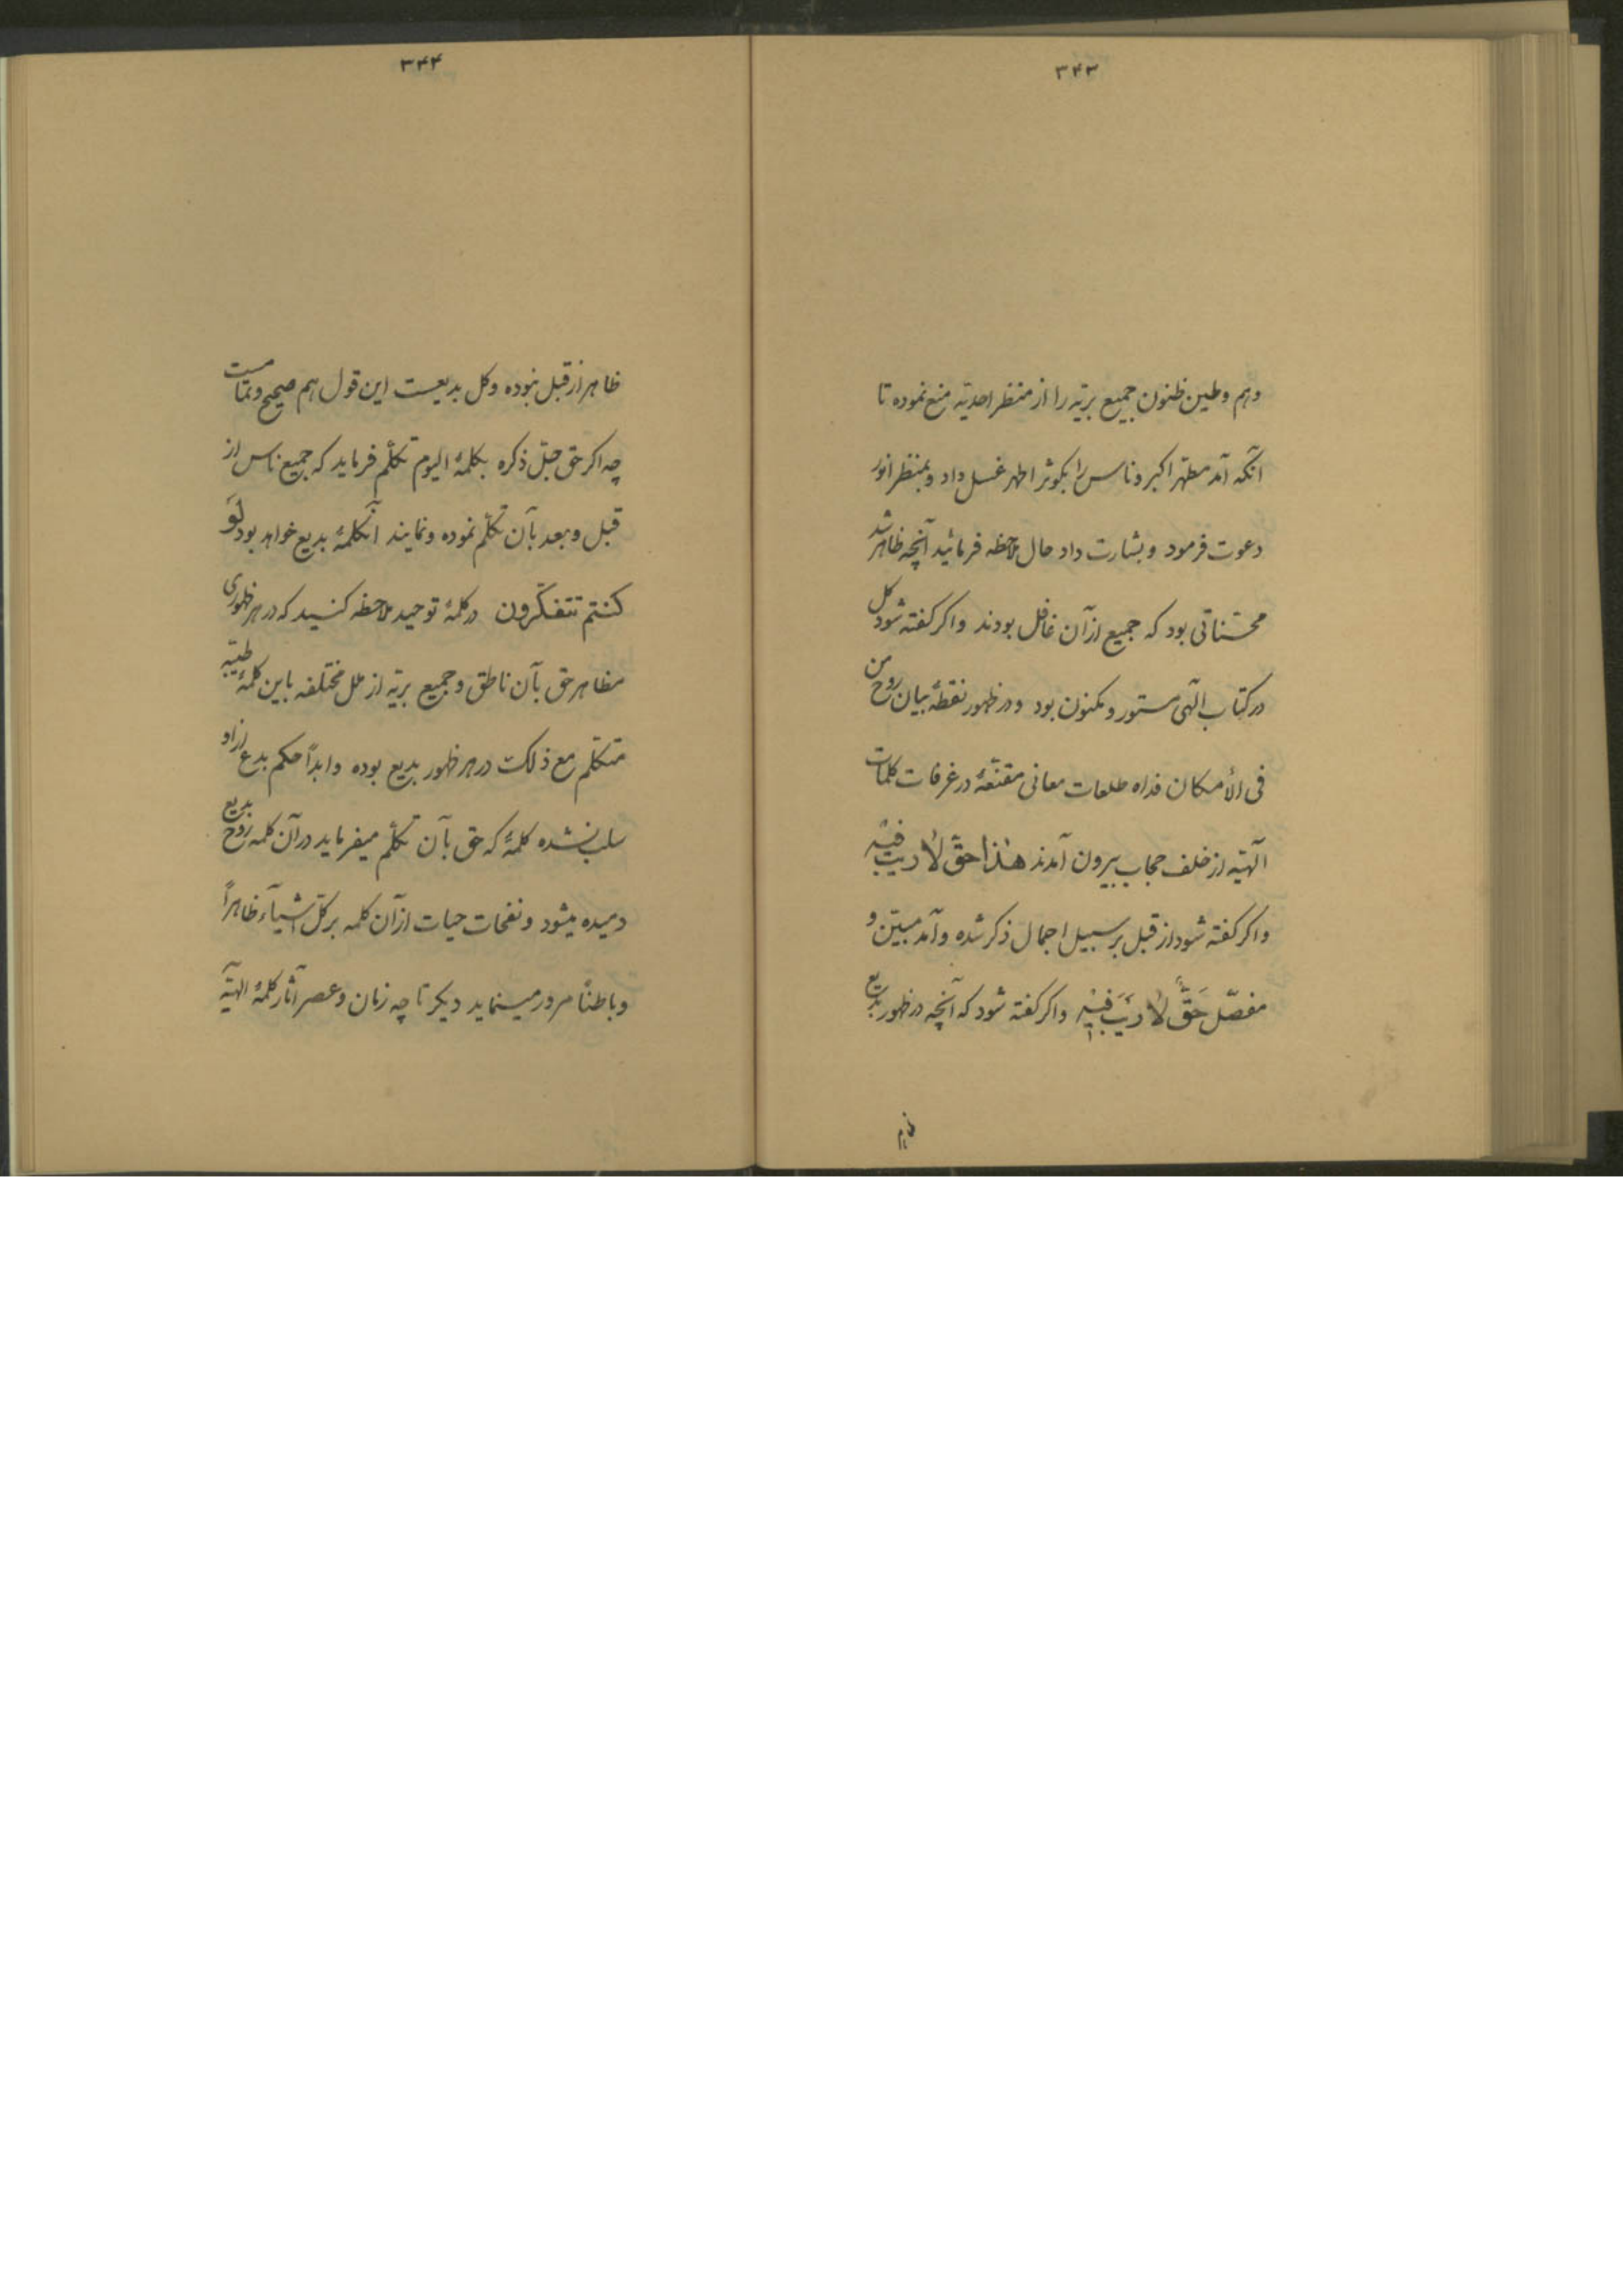 ۳۴۳
وهم وطین ظنون جمیع بریّه را از منظر احدیّه منع نموده تا
آنکه آمد مطهّر اکبر و ناس را بکوثر اطهر غسل داد و بمنظر انور
دعوت فرمود و بشارت داد حال ملاحظه فرمائید آنچه ظاهر شد
محسّناتی بود که جمیع از آن غافل بودند واکر کفته شود کل
در کتاب الٓهی مستور ومکنون بود ودر ظهور نقطهٔ بیان روح من
فی الأمکان فداه طلعات معانی مقنّعهٔ در غرفات کلمات
الٓهیّه از خلف حجاب بیرون آمدند هذا حقّ لا ریب فیه
واکر کفته شود از قبل بر سبیل اجمال ذکر شده وآمد مبیّن و
مفصّل حَقٌّ لا رَیَبَ فیه واکر کفته شود که آنچه در ظهور بدیع
۳۴۴
ظاهر از قبل نبوده وکل بدیعست این قول هم صحیح وتمامست
چه اکر حق جلّ ذکره بکلمهٔ الیوم تکلّم فرماید که جمیع ناس از
قبل وبعد بآن تکلّم نموده ونمایند آنکلمهٔ بدیع خواهد بود لَوَ
کنتم تتفکّرون در کلمهٔ توحید ملاحظه کنید که در هر ظهوری
مظاهر حق بآن ناطق وجمیع بریّه از ملل مختلفه باین کلمهٔ طیّبه
متکلّم مع ذلک در هر ظهور بدیع بوده وابداً حکم بدع از او
سلب نشده کلمهٔ که حق بآن تکلّم میفرماید در آن کلمه روح بدیع
دمیده میشود ونفحات حیات از آن کلمه بر کلّ اشیآء ظاهراً
وباطناً مرور مینماید دیکر تا چه زمان وعصر آثار کلمهٔ الهیّه